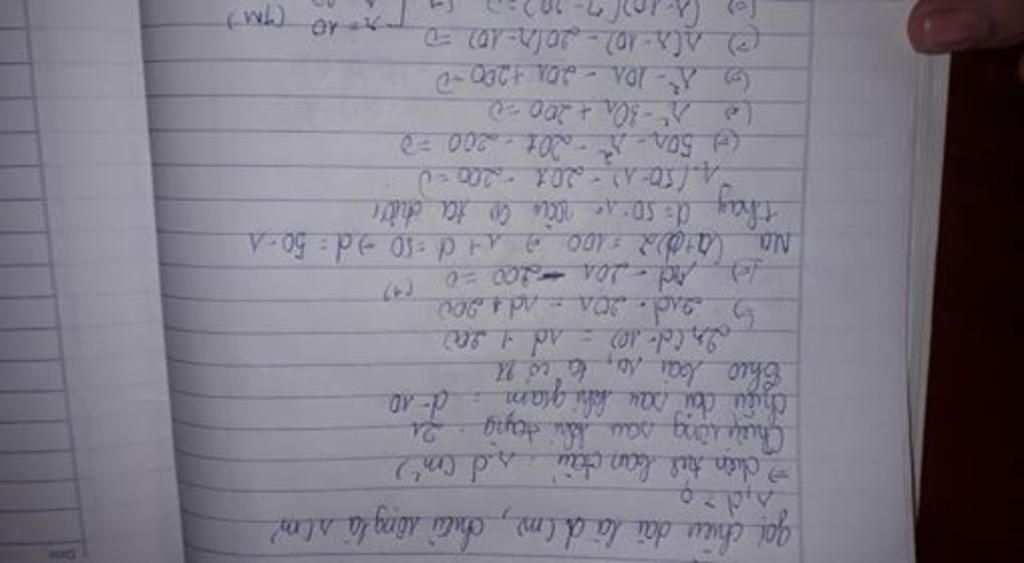 gọi chiều dài là d (m), chiều rộng là r (m)
r, d > 0
=> diện tích ban đầu: r.d (m²)
Chiều rộng sau khi tăng: 2r
chiều dài sau khi giảm = d-10
theo bài ra, ta có pt
2r(d-10) = rd + 200
(=) 2rd - 20r = rd + 200
(=) rd - 20r - 200 = 0 (1)
Mà (r+d)2 = 100 => r + d = 50 => d = 50-r
thay d = 50-r vào (1) ta được
r.(50-r) - 20r - 200 = 0
(=) 50r - r² - 20r - 200 = 0
(=) r² - 30r + 200 = 0
(=) r² - 10r - 20r + 200 = 0
(=) r(r-10) - 20(r-10) = 0
(=) (r-10)(r-20) = 0 (=) [ r = 10 (TM)